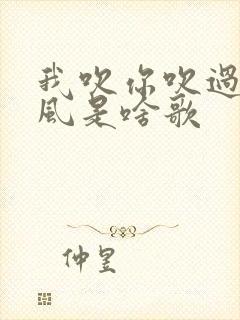 我吹你吹過
風是啥歌
仲昱